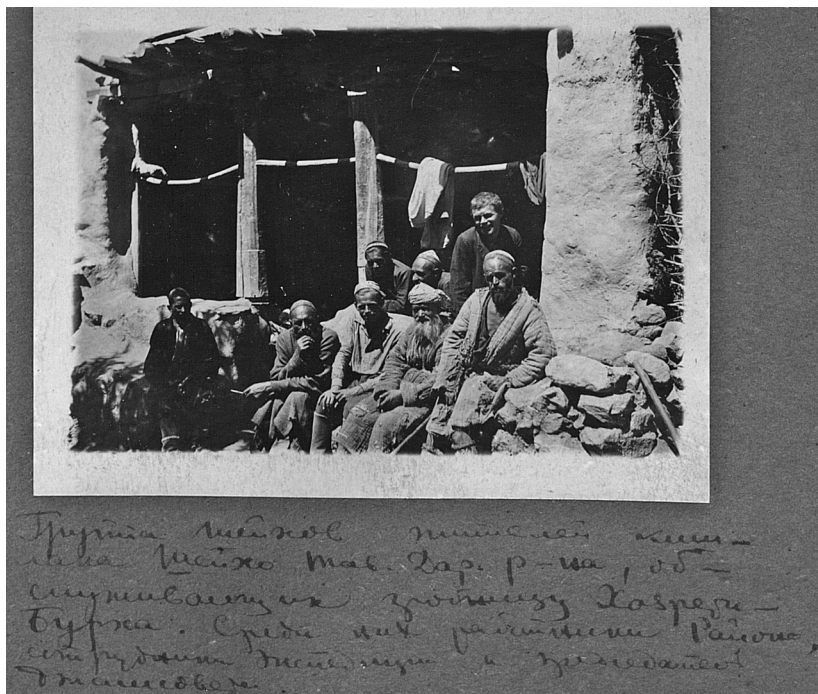 Группа шейхов жителей киш-
лака Шейхо Тав. Дар. р-на, об-
служивающих гробницу Хазрети-
Бурха. Среди них работники Района,
сотрудники Экспедиции и председатель